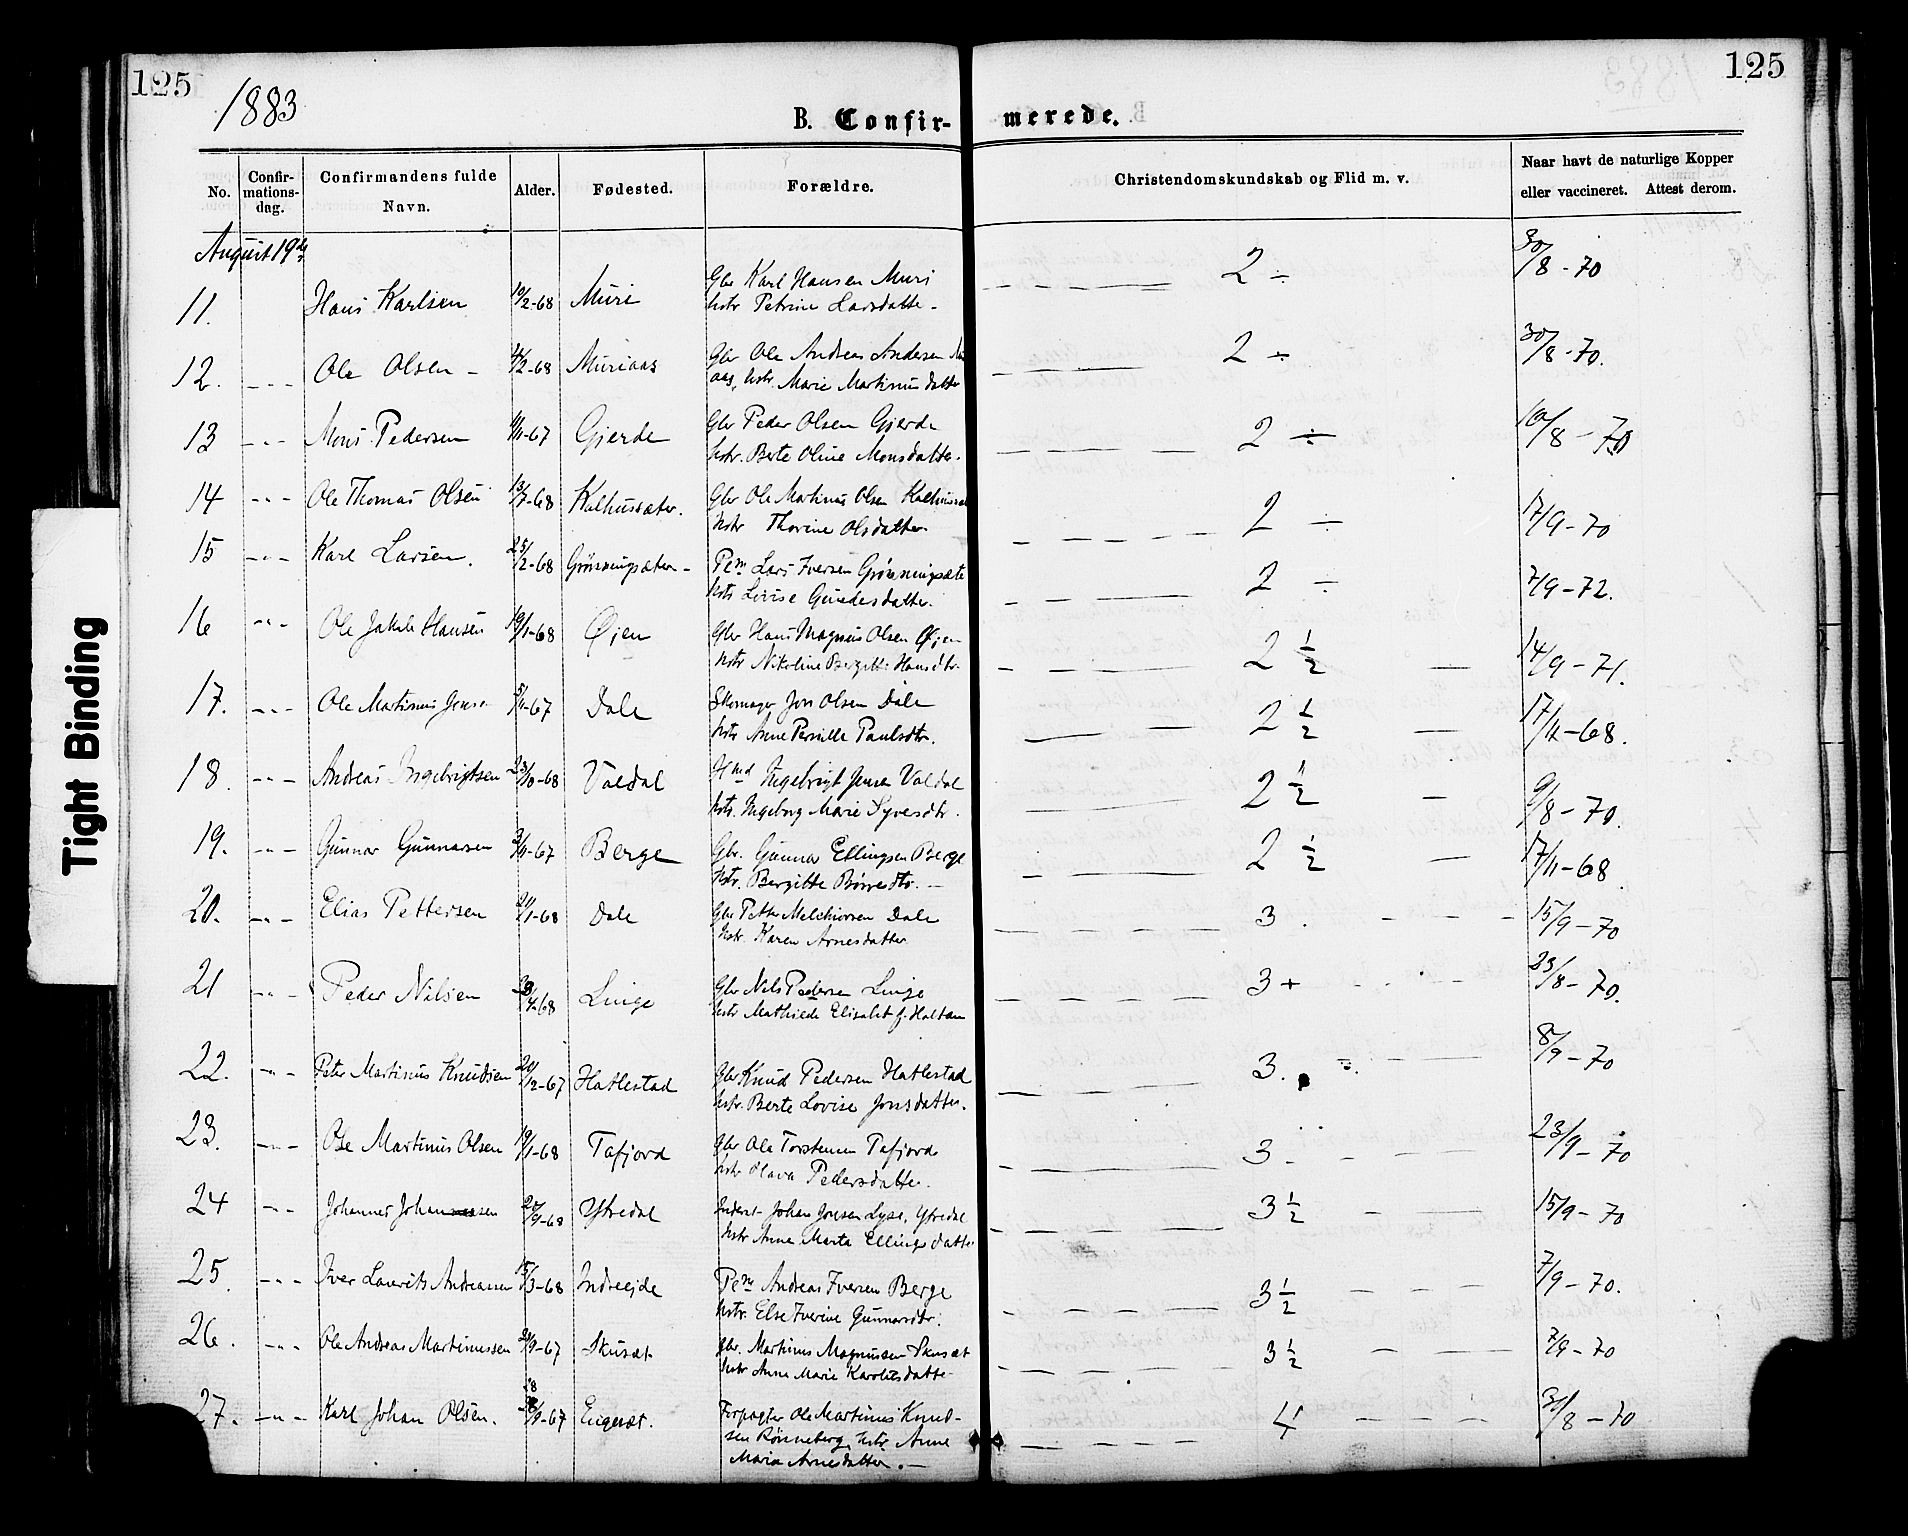 125
125
1883
B. Confir-
merede.
No.
Confir-
mations-
dag.
Confirmandens fulde
Navn.
Alder.
Fødested.
Forældre.
Christendomskundskab og Flid m. v.
Naar havt de naturlige Kopper
eller vaccineret. Attest derom.
August 19de
11. Hans Karlsen 10/2-68 Muri Gbr Karl Hansen Muri 2 ÷ 30/8-70
hstr Petrine Larsdatte -
12. - - - Ole Olsen - 4/2-68 Muriaas Gbr Ole Andreas Andersen 2 ÷ 30/8-70.
aas, hstr. Marie Martinusdatter
13 - " - Mons Pedersen 11/11-67 Gjerde Gbr Peder Olsen Gjerde 2 ÷ 10/8-70
hstr. Berte Oline Monsdatter.
14 - " - Ole Thomas Olsen 13/7-68 Kalhussæter. Gbr Ole Martinus Olsen 2 ÷ 17/9-70
hstr Thorine Olsdatter
15 - " - Karl Larsen. 25/2-68 Grønningsæter - Pem Lars Iversen Grønningsæte 2 ÷ 7/9-72.
hstr Lovise Gunnedsdatter.
16 - " - Ole Jakob Hansen 19/1-68 Øien Gbr Hans Magnus Olsen Øien 2 1/2 - 14/9-71.
hstr Nikoline Bergitte Hansdtr.
17. - " - Ole Martinus Jonsen 5/11-67 Dale Skomager Jon Olsen Dale 2 1/2 - 17/11-68.
hstr Anne Pernille Paulsdtr.
18. - " - Andreas Ingebrigtsen 23/10-68 Valdal Hmd Ingebrigt Jensen Valdal 2 1/2 - 9/8-70.
hstr. Ingeborg Marie Syversdtr.
19. - " - Gunnar Gunnarsen 3/11-67 Berge Gbr. Gunnar Ellingsen Berge 2 1/2 - 17/11-68
hstr. Bergitte Børresdtr. -
20. - " - Elias Pettersen 21/1-68 Dale Gbr Petter Melchiorsen Dale 3. - - - 15/9-70
hstr. Karen Arnesdatter
21 - " - Peder Nilsen /4-68 Linge Gbr Nels Pedersen Linge 3+ 23/8-70.
hstr Mathilde Elisabet f. Holtan
22. - " - Peter Martinus Knudsen 20/12-67 Hatlestad Gbr Knud Pedersen Hatlestad 3. 8/9-70
hstr. Berte Lovise Jonsdatter.
23. - " - Ole Martinus Olsen 19/1-68 Tafjord Gbr Ole Torstensen Tafjord 3. 23/9-70
hstr Olava Pedersdatter.
24 - " - Johannes Johansen 20/9-68 Ytredal Inderst Johan Jonsen Lyse, Ytredal 3 1/2 - 15/9-70
hstr Anne Marta Ellingsdatte
25. - " - Iver Laurits Andreassen 15/3-68 Indreeide Pem Andreas Iversen Berge 3 1/2 - - 7/9-70.
hstr. Else Iverine Gunnarsdtr.
26. - " - Ole Andreas Martinussen /9-67 Skusæt Gbr. Martinus Magnussen Skusæt 3 1/2 - 7/9-70
hstr Anne Marie Karolusdatte
27. - " - Karl Johan Olsen. 28/9-67 Engeset. Forpagter Ole Martinus Knud- 4 - - - 31/8-70
sen Rønneberg, hstr Anne
Maria Arnesdatter. -
Tight Binding